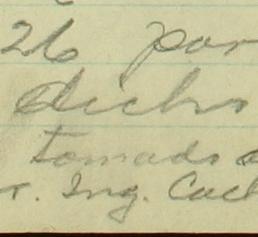 26 por
dicho
tomado
r. Ing. Cacl